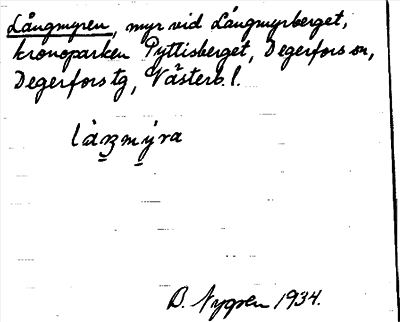 Långmyren, myr vid Långmyrberget,
kronoparken Pyttisberget, Degerfors sn,
Degerfors tg, Västerb. l.
B. Nygren 1934.